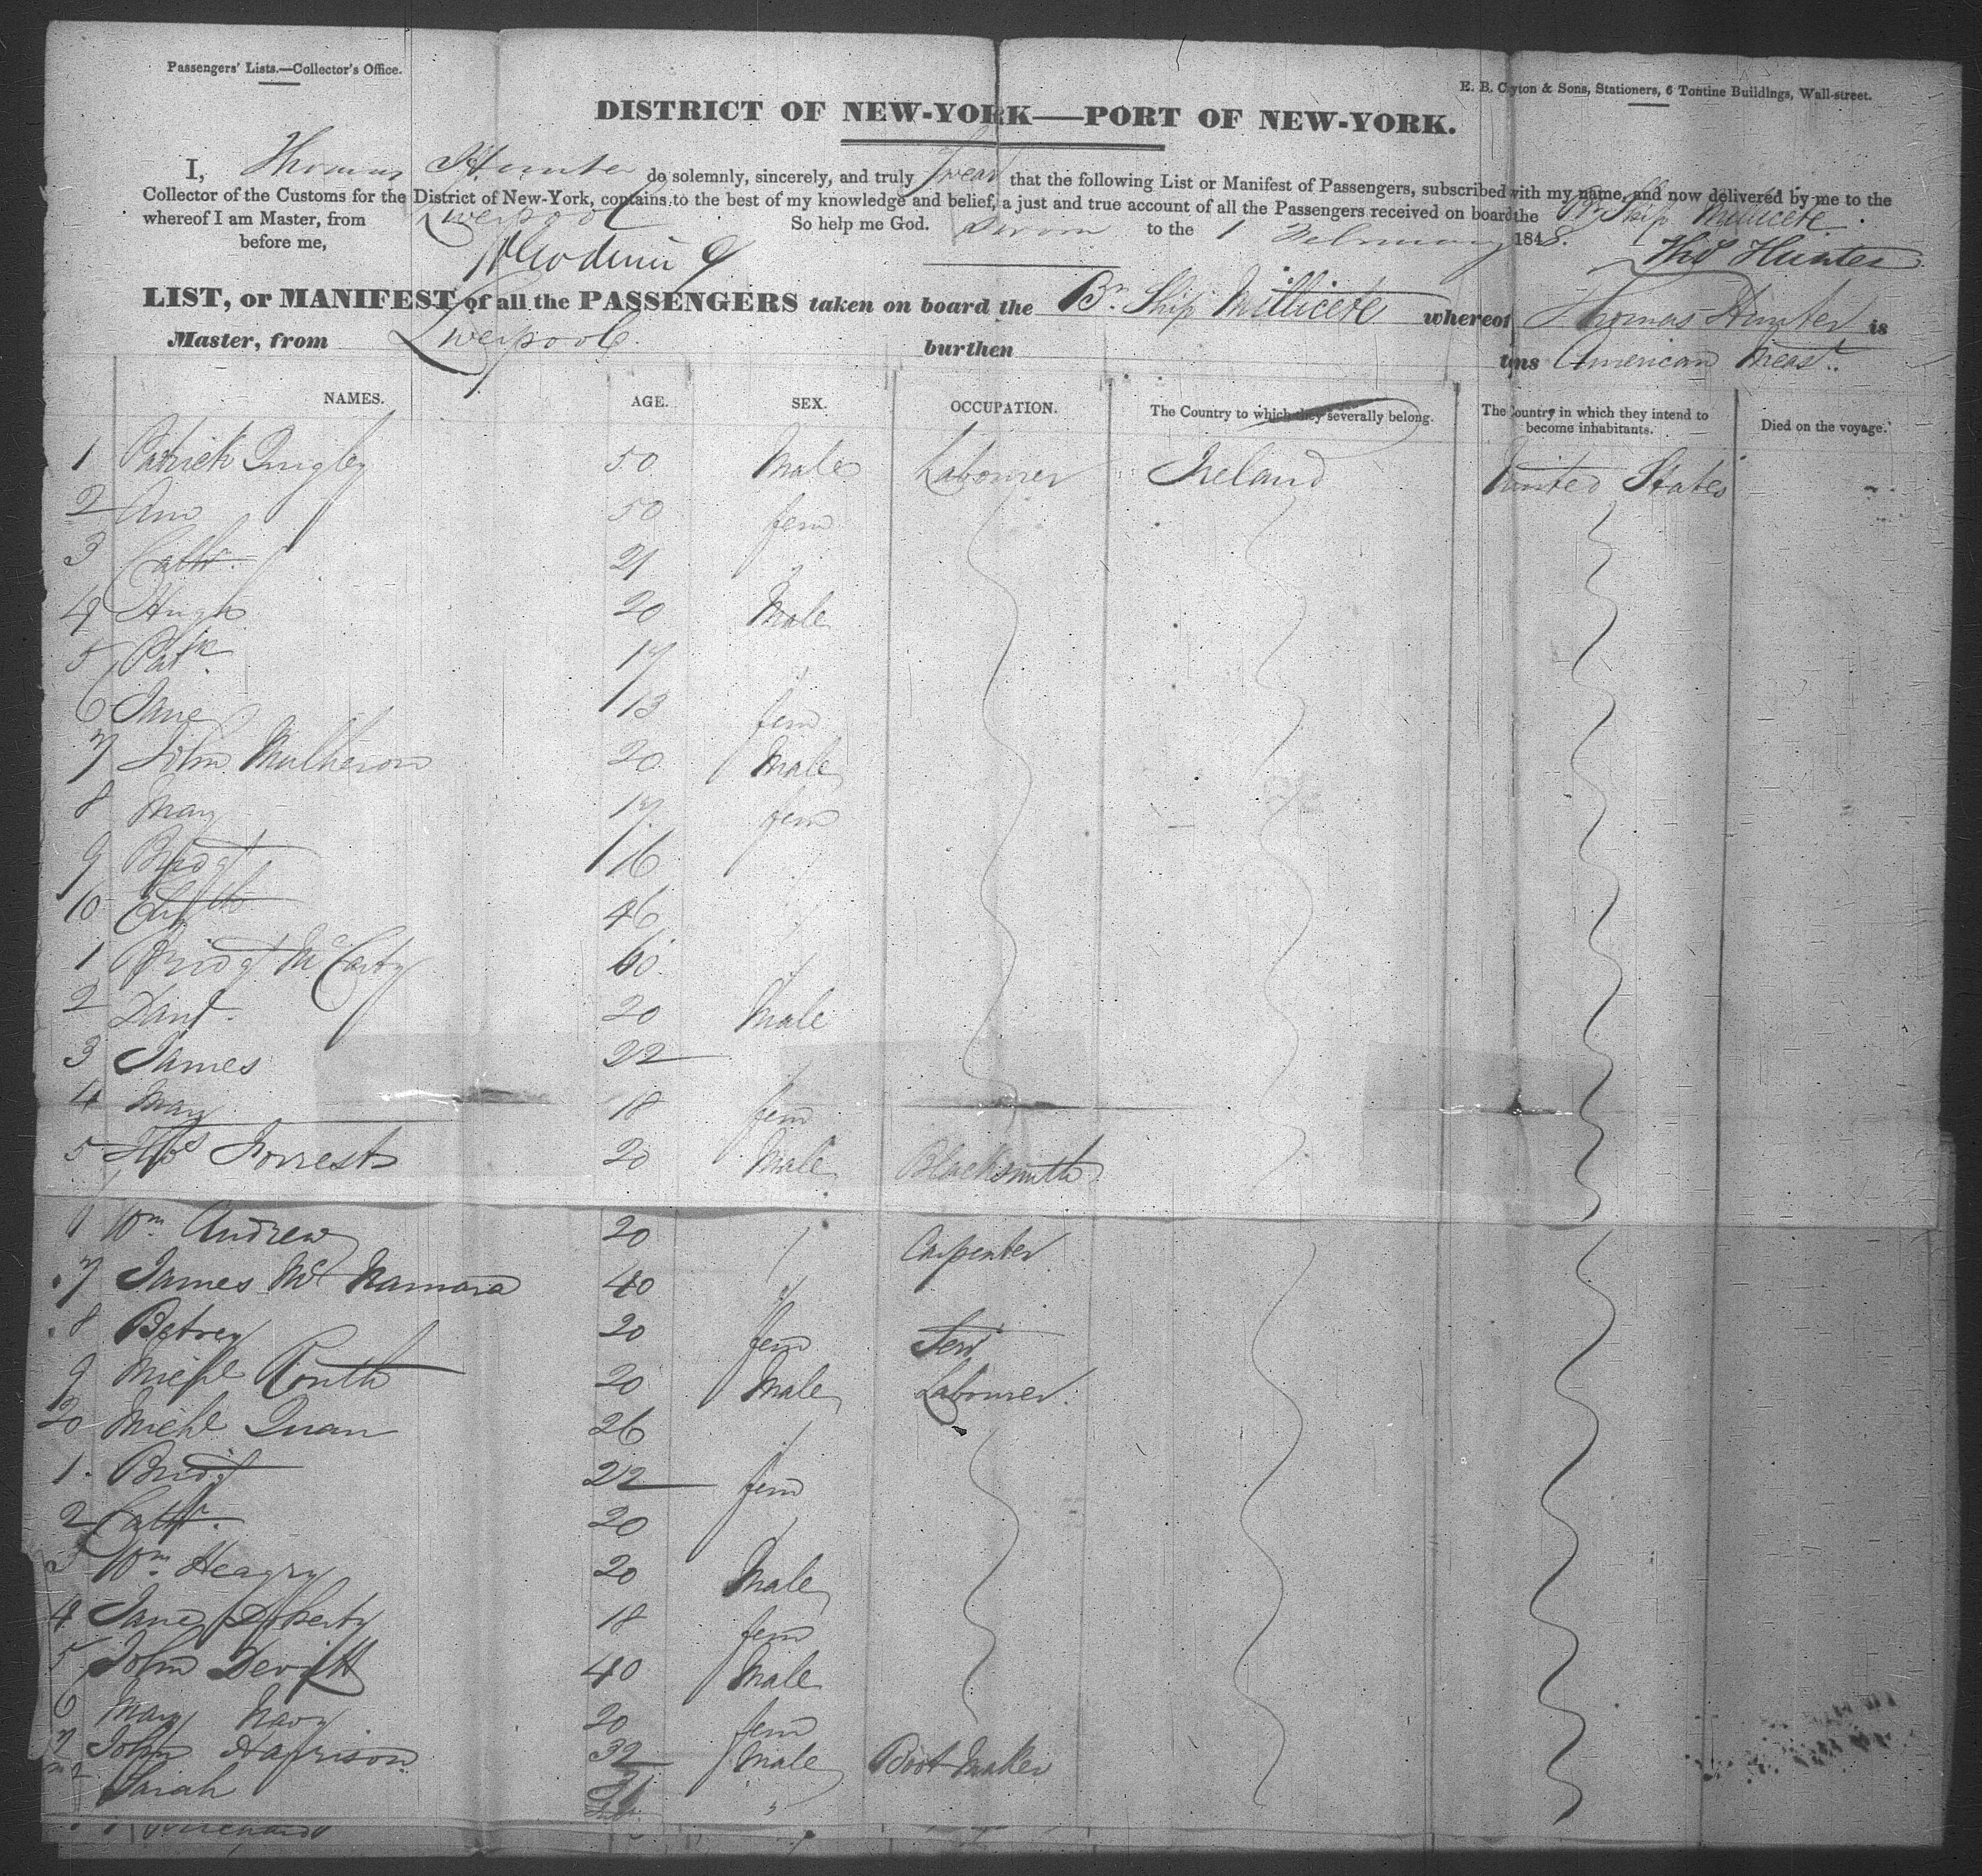 Passengers' Lists.—Collector's Office.
E. B. Clayton & Sons, Stationers, 6 Tontine Buildings, Wall-street.
DISTRICT OF NEW-YORK—PORT OF NEW-YORK.
I, Thomas Hunter do solemnly, sincerely, and truly swear that the following List or Manifest of Passengers, subscribed with my name, and now delivered by me to the
Collector of the Customs for the District of New-York, contains, to the best of my knowledge and belief, a just and true account of all the Passengers received on board the Br Ship Millicete
whereof I am Master, from Liverpool So help me God. Sworn to the 1 February 1848.
before me, Thos Hunter
LIST, or MANIFEST of all the PASSENGERS taken on board the Br. Ship Millicete whereof Thomas Hunter is
Master, from Liverpool burthen tons American Meast.
NAMES. AGE. SEX. OCCUPATION. The Country to which they severally belong. The Country in which they intend to become inhabitants. Died on the voyage.
1 Patrick Quigley 50 Male Labourer Ireland United States
2 Ann 50 fem
3 Cathr. 21
4 Hugh 20 Male
5 Patk. 17
6 Jane 13 fem
7 John Mulheron 20 Male
8 Mary 17 fem
9 Bridgt 16
10 Elizth 46
1 Bridgt McCarty 60
2 Danl. 20 Male
3 James 22
4 Mary 18 fem
5 Thos Forrest 20 Male Blacksmith
Wm Andrew 20 Carpenter
7 James McNamara 40
8 Betsey 20 fem Servt
9 Michl Routh 20 Male Labourer
20 Michl Quan 26
1 Bridgt 22 fem
2 Cathr. 20
3 Wm. Heagry 20 Male
4 Jane Doherty 18 fem
5 John Devitt 40 Male
6 Mary Navy 20 fem
7 John Harrison 32 Male Boot Maker
Sarah "